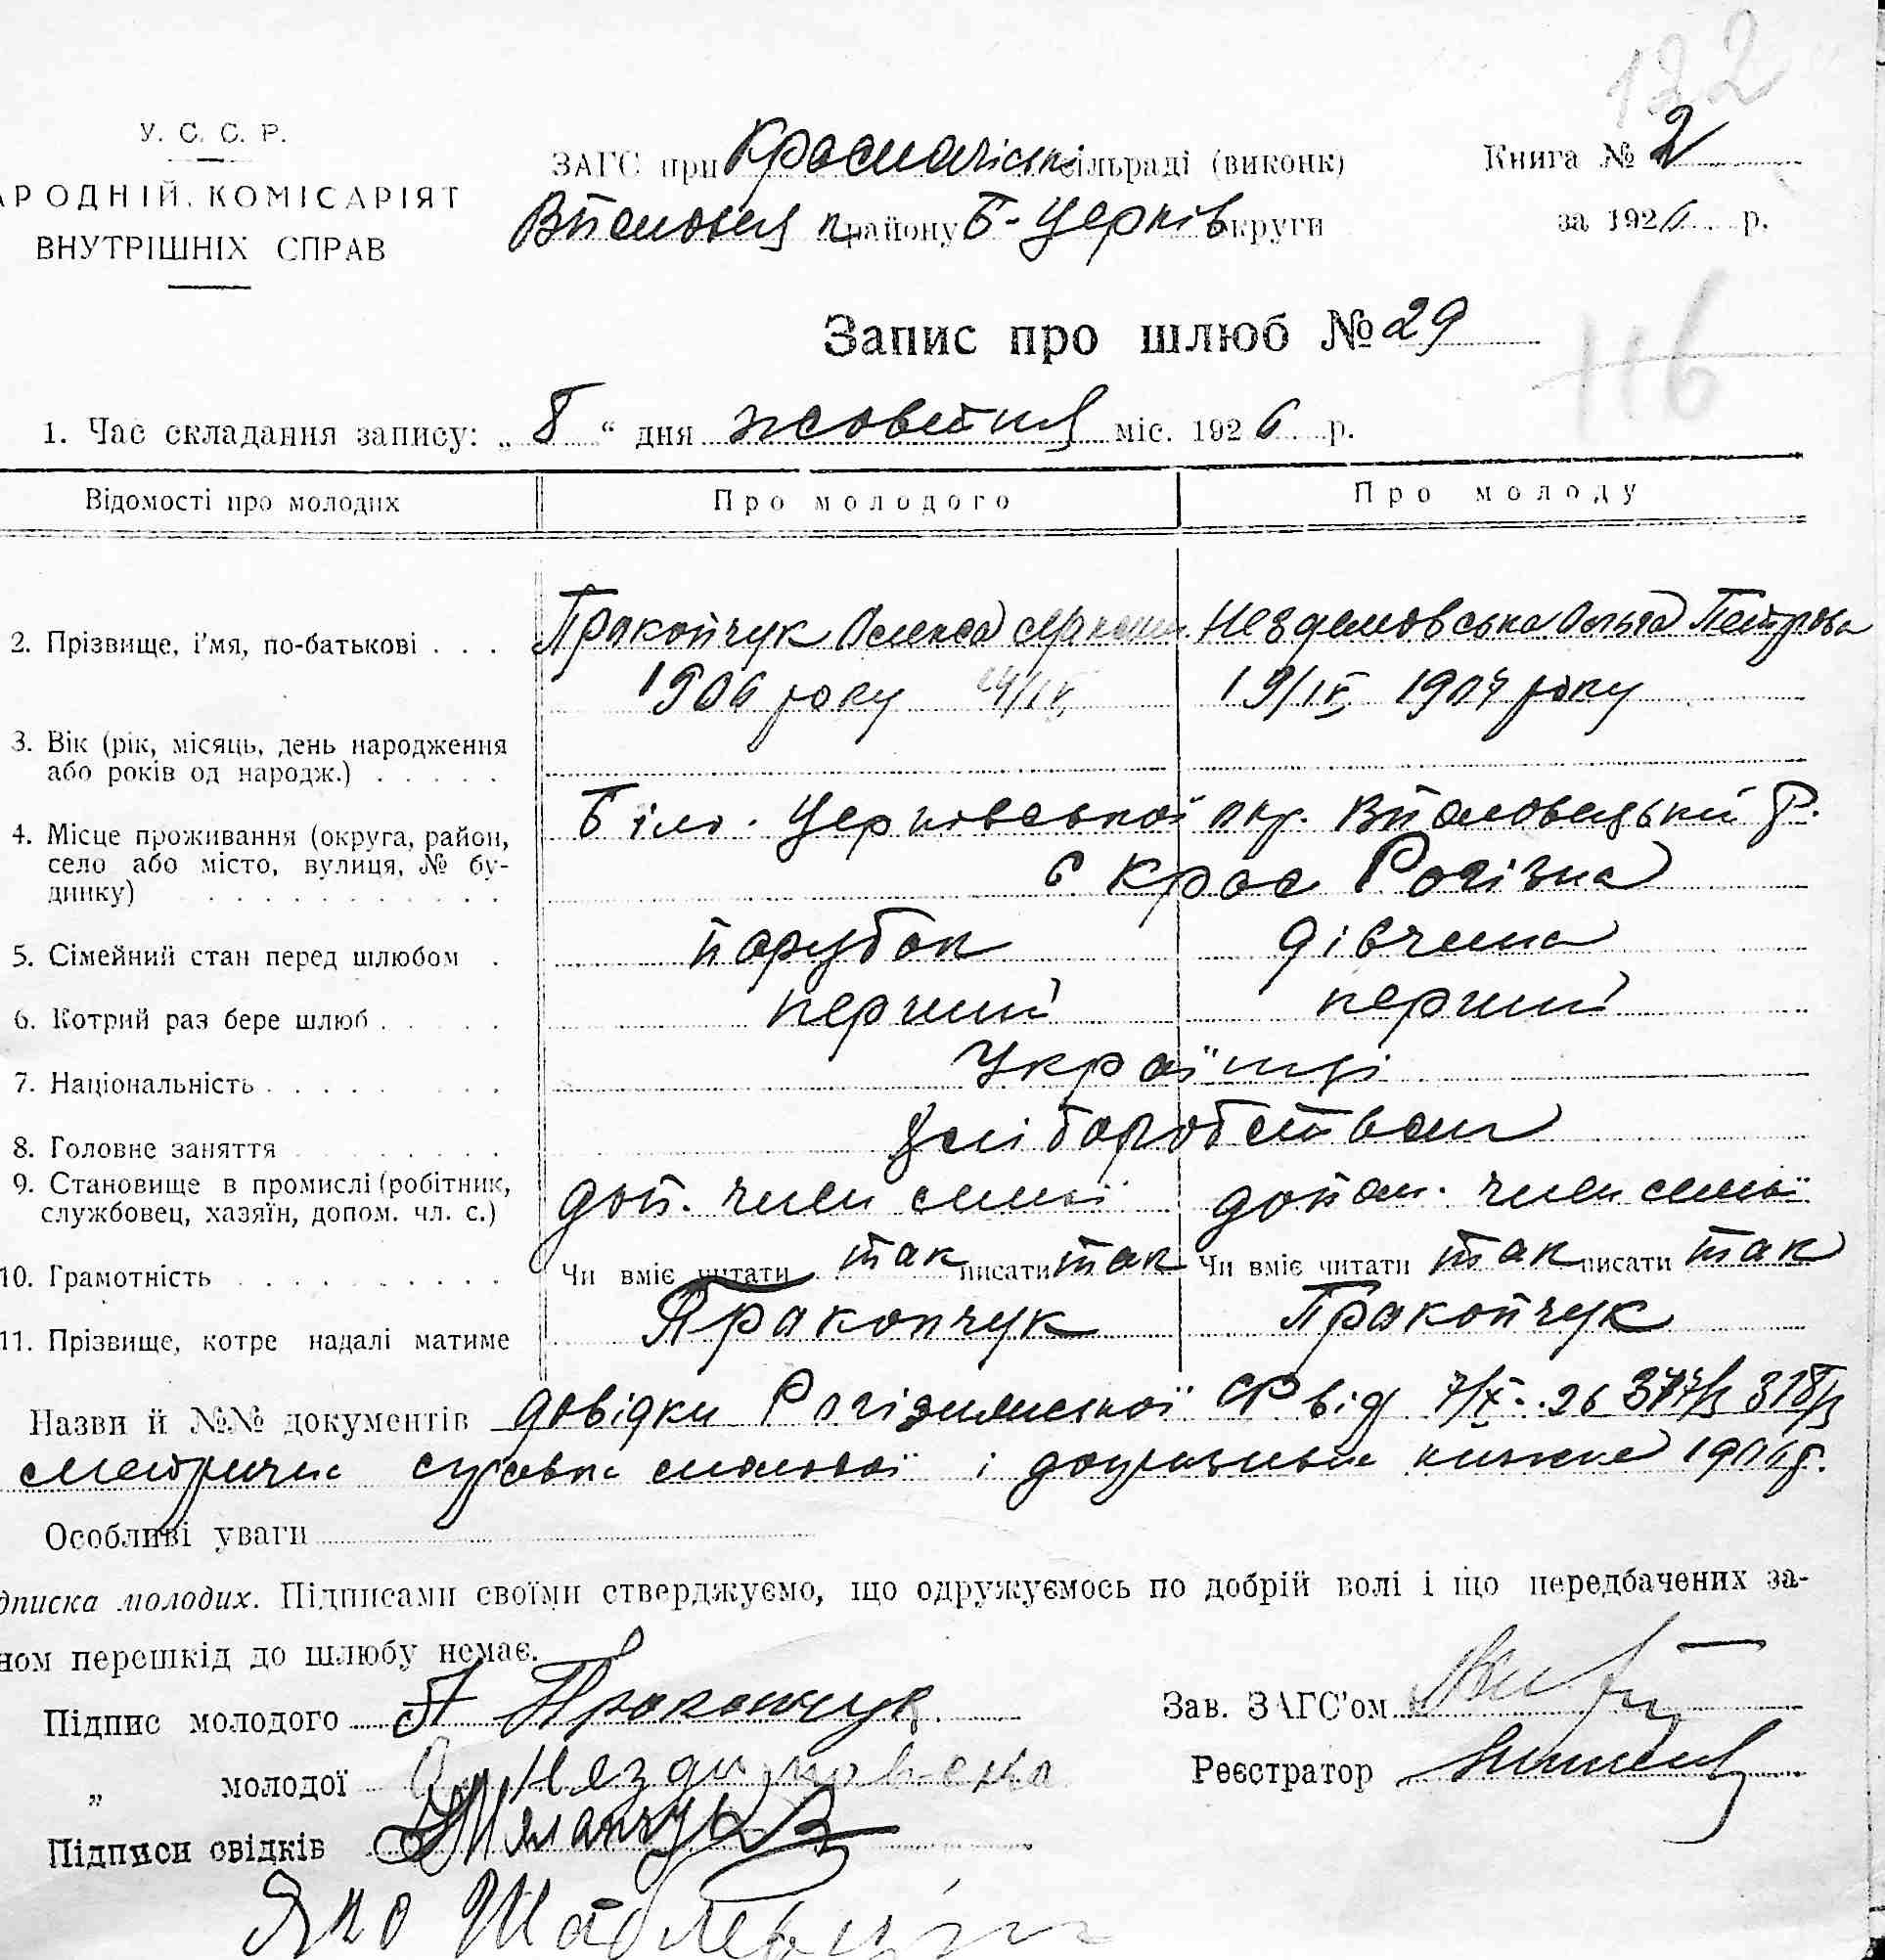 122
У. С. С. Р.
АРОДНІЙ. КОМІСАРІЯТ
ВНУТРІШНІХ СПРАВ
ЗАГС при сільраді (виконк)
району Б-Церків округи
Книга № 2
за 1926 р.
Запис про шлюб № 29
116
1. Час складання запису: „ 8 “ дня жовтня міс. 1926 р.
Відомості про молодих Про молодого Про молоду
2. Прізвище, і'мя, по-батькові . . . Пракопчук Олекса Нездемовська Ольга Петрова
1906 року 19/IV 1907 року
3. Вік (рік, місяць, день народження
або років од народж.) . . . . .
4. Місце проживання (округа, район,
село або місто, вулиця, № бу-
динку) . . . . . . . . . . .
Біло. Церківської окр. Р.
с Крас Рогізна
5. Сімейний стан перед шлюбом . парубок дівчина
6. Котрий раз бере шлюб . . . . . перший перший
7. Національність . . . . . . . Українці
8. Головне заняття . . . . . . . хліборобством
9. Становище в промислі (робітник,
службовец, хазяїн, допом. чл. с.)
доп. член семьї допом. член семьї
10. Грамотність . . . . . . . . . Чи вміє читати так писати так Чи вміє читати так писати так
11. Прізвище, котре надалі матиме Пракопчук Пракопчук
Назви й №№ документів довідки СР від 7/X-26
і книжка
Особливі уваги
дписка молодих. Підписами своїми стверджуємо, що одружуємось по добрій волі і що передбачених за-
ном перешкід до шлюбу немає.
Підпис молодого А Пракопчук
Зав. ЗАГС'ом
„ молодої О. Нездимовска
Реєстратор
Підписи свідків